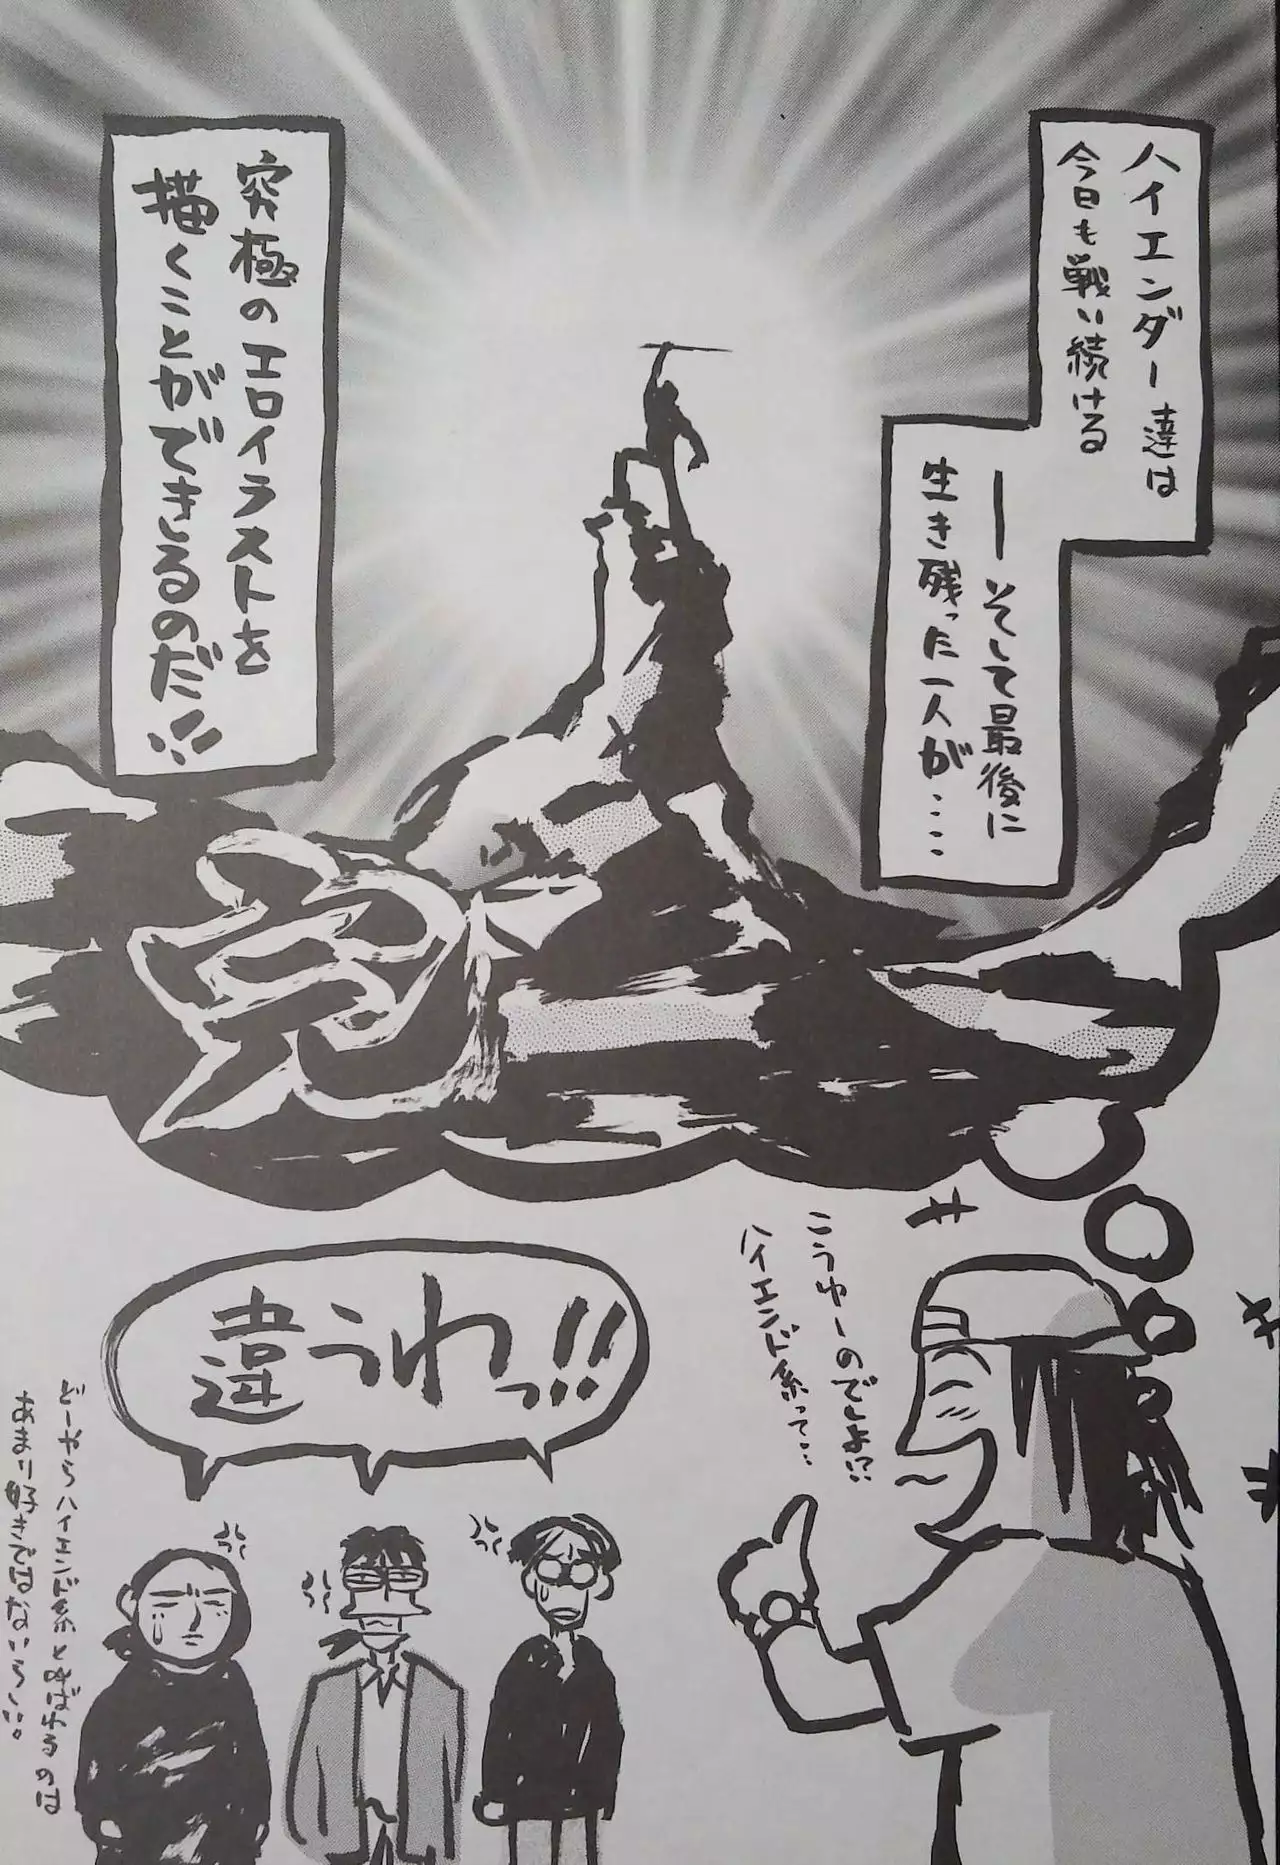 ハイエンダー達は
今日も戦い続ける
──そして最後に
生き残った一人が‥‥
究極のエロイラストを
描くことができるのだ!!
完
こうゆーのでしょ!?
ハイエンド系って…
違うわっ!!
どーやらハイエンド系と呼ばれるのは
あまり好きではないらしい。